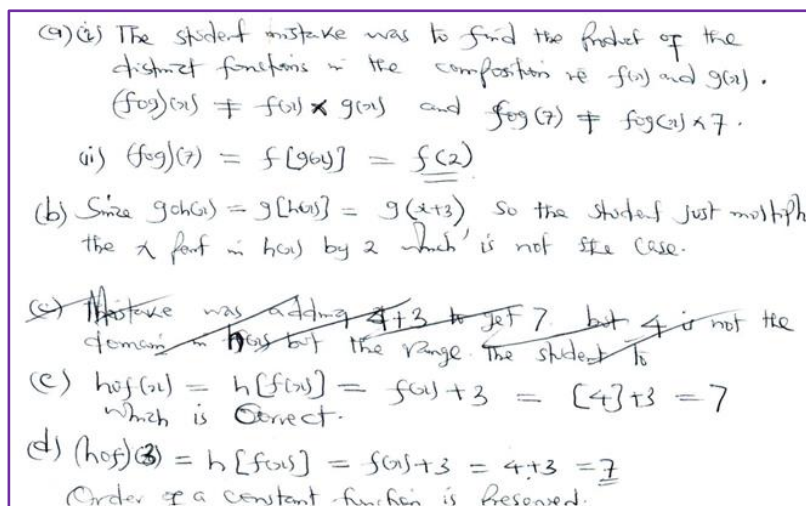 (a)(i) The student mistake was to find the product of the
distinct functions in the composition ie f(x) and g(x).
(fog)(x) ≠ f(x) × g(x) and fog(7) ≠ fog(x) × 7.
(ii) (fog)(7) = f[g(x)] = f(2)
(b) Since goh(x) = g[h(x)] = g(x+3) so the student just multiply
the x part in h(x) by 2 which is not the case.
(c) Mistake was adding 4+3 to get 7 but 4 is not the
domain in h(x) but the range. The student to
(c) hof(x) = h[f(x)] = f(x)+3 = [4]+3 = 7
which is Correct.
(d) (hof)(3) = h[f(x)] = f(x)+3 = 4+3 = 7
Order of a constant function is Preserved.